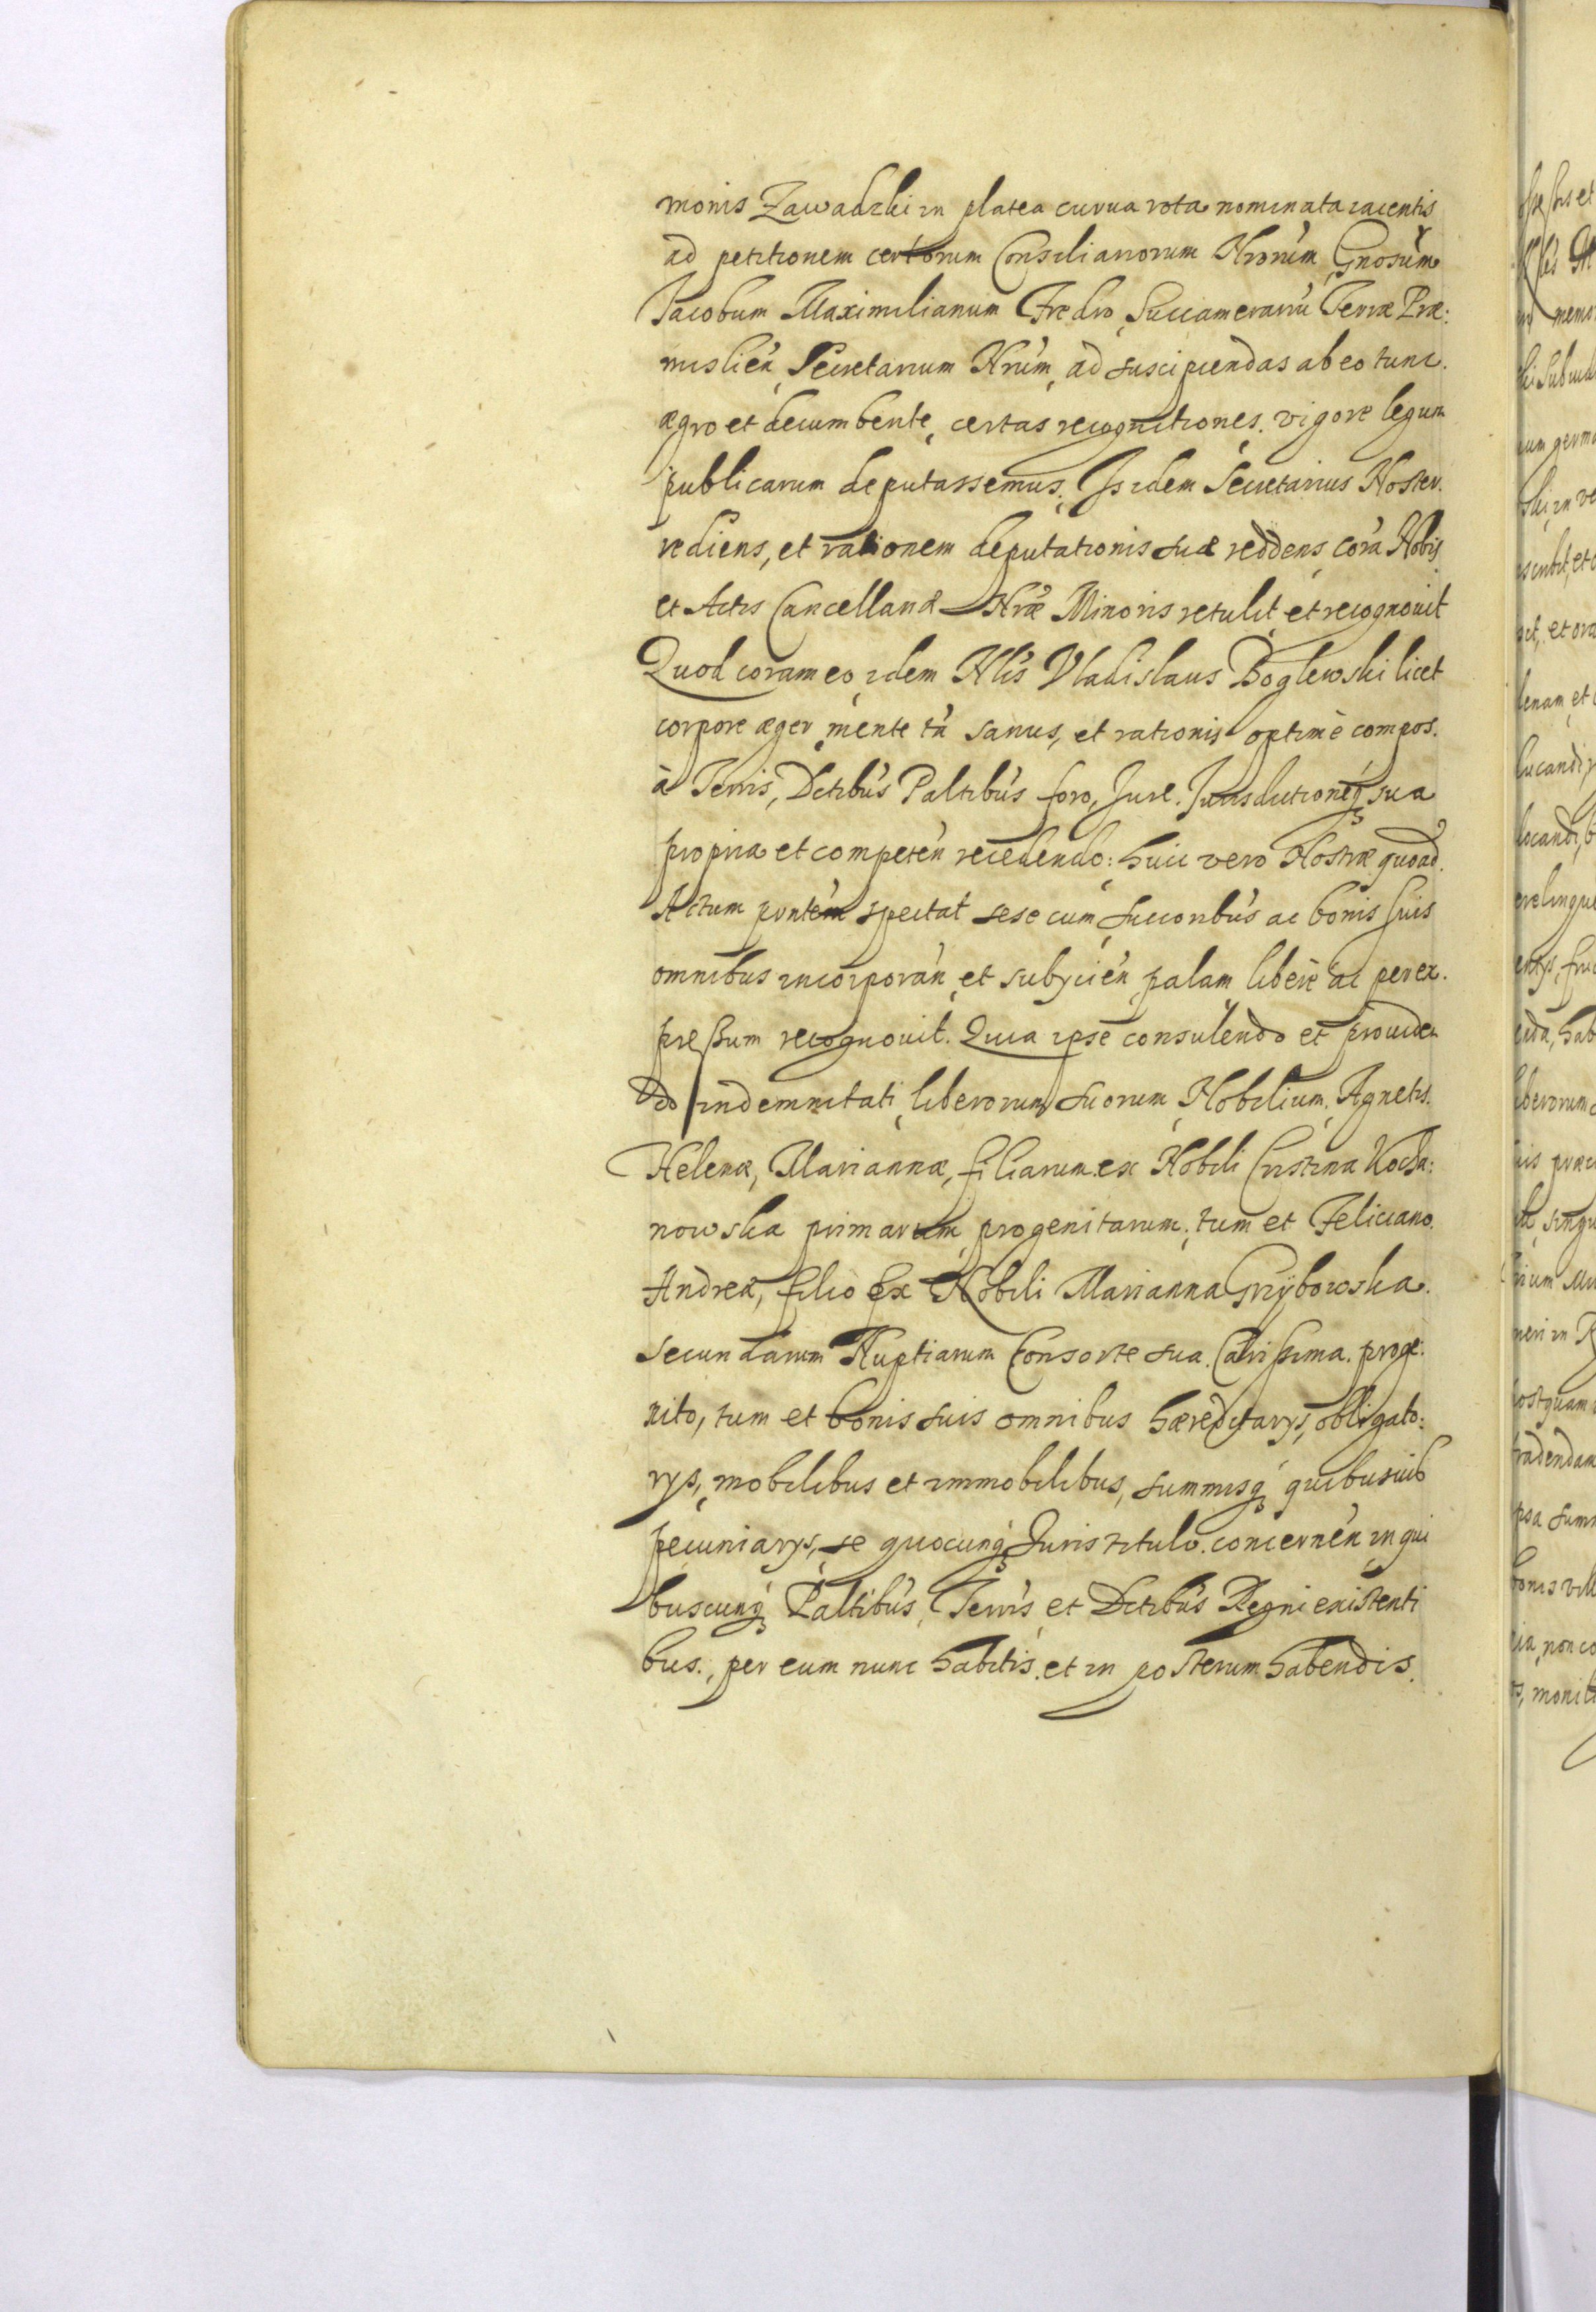 monis Zawadzki in platea curua rota nominata iacentis
ad petitionem certorum Consiliariorum Nrorum, Gnosum
Jacobum Maximilianum Fredro, Succamerariu Terræ Præ:
mislien, Secretarium Nrum, ad suscipiendas ab eo tunc.
ægro et decumbente, certas recognitiones. vigore legum
publicarum deputassemus. Is idem Secretarius Noster.
rediens, et rationem deputationis suæ reddens, corà Nobis
et Actis Cancellariæ Nræ Minoris retulit et recognouit
Quod coram eo idem Nlis Vladislaus Boglewski licet
corpore æger, mente tn sanus, et rationis optimè compos.
à Terris, Dctibus Paltibus foro, Jure. Jurisdictioneq sua
propria et competen recedendo: huic vero Nostræ quoad.
Actum pntem spectat sese cum succoribus ac bonis suis
omnibus incorporan, et subycien, palam liberè ac per ex.
preßum recognouit. Quia ipse consulendo et prouiden
do indemnitati, liberorum suorum, Nobilium, Agnetis.
Helenæ, Mariannæ, filiarum ex Nobili Cristina Kocha:
nowska primarum, progenitarum, tum et Feliciano.
Andrea, filio ex Nobili Marianna Grzÿbowska.
secundarum Nuptiarum Consorte sua Carißima. proge:
nito, tum et bonis suis omnibus hæreditarys, obligato:
rys, mobilibus et immobilibus, summisq quibusuis
pecuniarys, se quocunq Juris titulo. concernen in qui
buscunq Paltibus, Terris, et Dctibus Regni existenti
bus., per eum nunc habitis. et in posterum habendis.